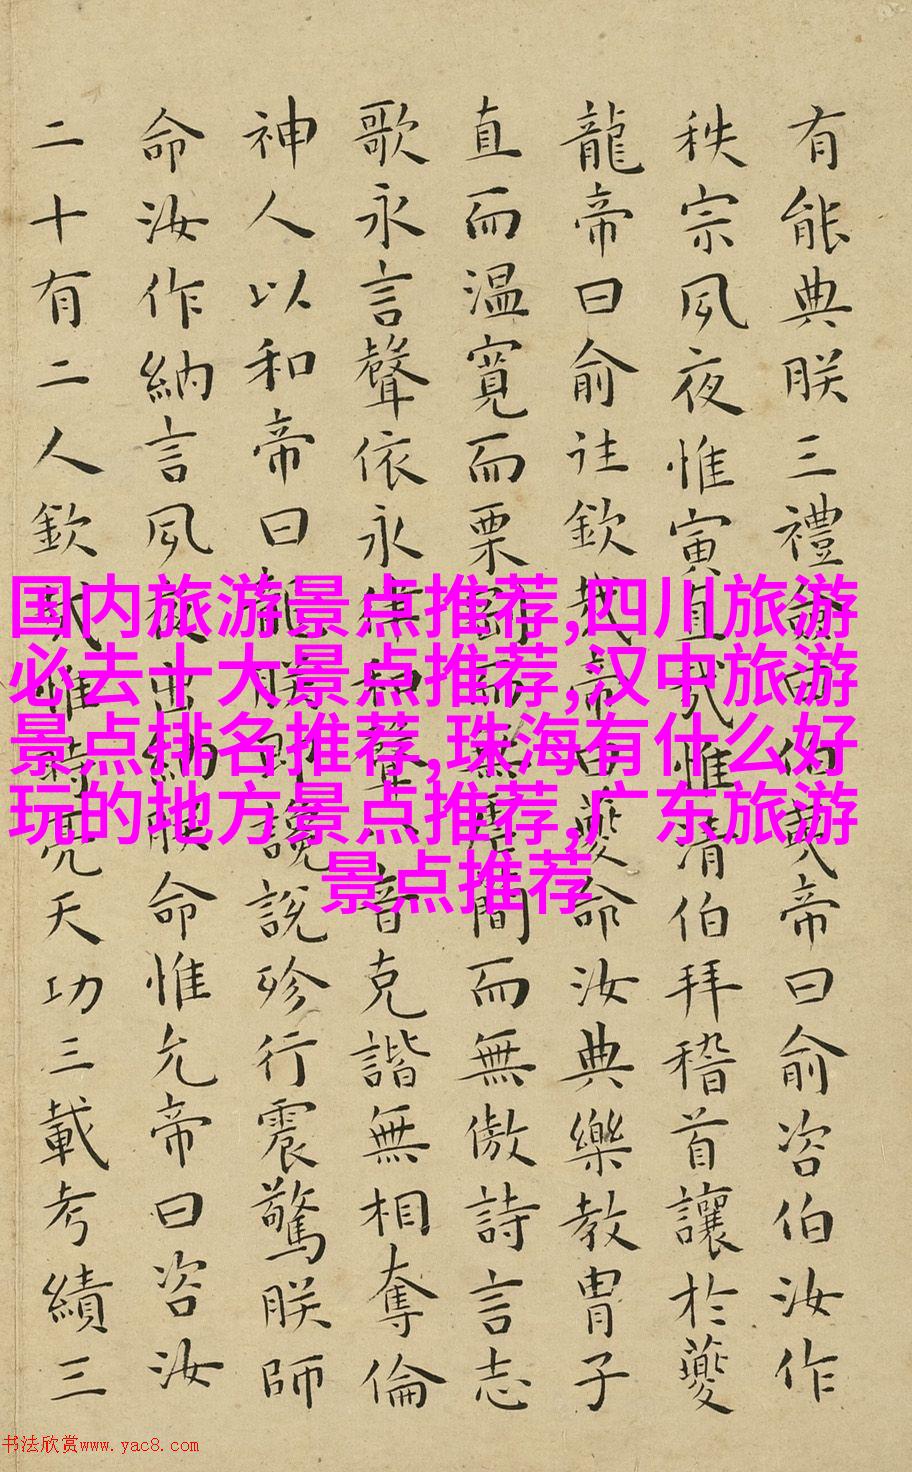 有能典朕三禮僉曰伯夷帝曰俞咨伯汝作
秩宗夙夜惟寅直哉惟清伯拜稽首讓於夔
龍帝曰俞往欽哉帝曰夔命汝典樂教胄子
直而温寬而栗剛而無虐簡而無傲詩言志
歌永言聲依永律和聲八音克諧無相奪倫
神人以和帝曰龍朕堲讒說殄行震驚朕師
命汝作納言夙夜出納朕命惟允帝曰咨汝
二十有二人欽哉惟時亮天功三載考績三
国内旅游景点推荐,四川旅游
必去十大景点推荐,汉中旅游
景点排名推荐,珠海有什么好
玩的地方景点推荐,广东旅游
景点推荐
书法欣赏www.yac8.com